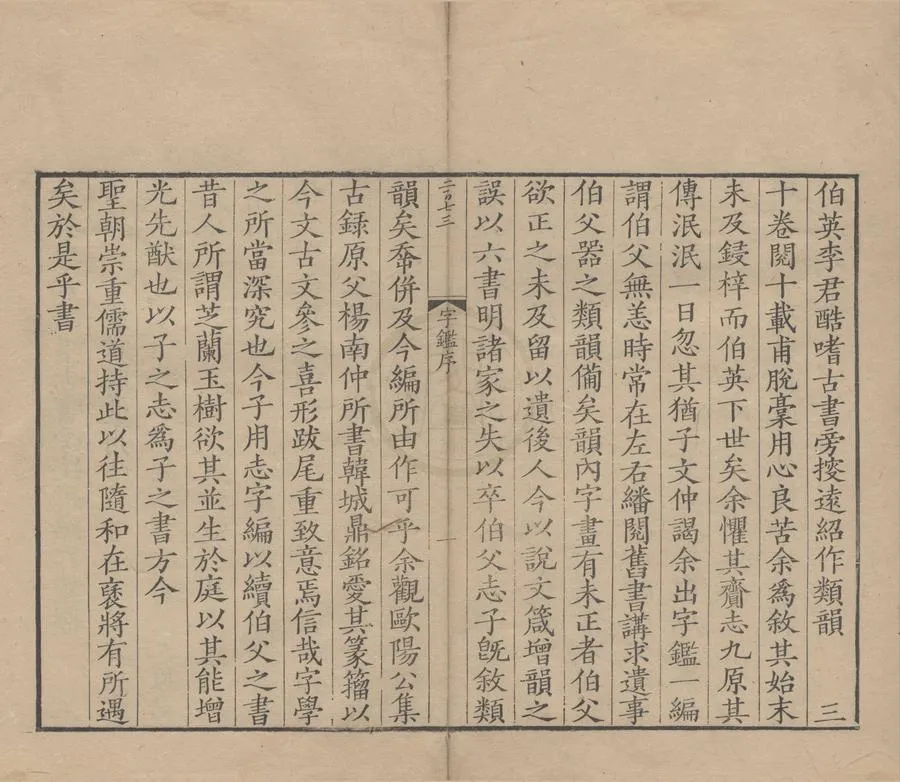 伯英李君酷嗜古書旁搜遠紹作類韻三
十卷閱十載甫脫稾用心良苦余爲敘其始末
未及鋟梓而伯英下世矣余懼其齎志九原其
傳泯泯一日忽其猶子文仲謁余出字鑑一編
謂伯父無恙時常在左右繙閱舊書講求遺事
伯父器之類韻備矣韻內字畫有未正者伯父
欲正之未及留以遺後人今以說文箴增韻之
誤以六書明諸家之失以卒伯父志子旣敘類
字鑑序
一
韻矣奮併及今編所由作可乎余觀歐陽公集
古錄原父楊南仲所書韓城鼎銘愛其篆籀以
今文古文參之喜形跋尾重致意焉信哉字學
之所當深究也今子用志字編以續伯父之書
昔人所謂芝蘭玉樹欲其並生於庭以其能增
光先猷也以子之志爲子之書方今
聖朝崇重儒道持此以往隨和在褎將有所遇
矣於是乎書